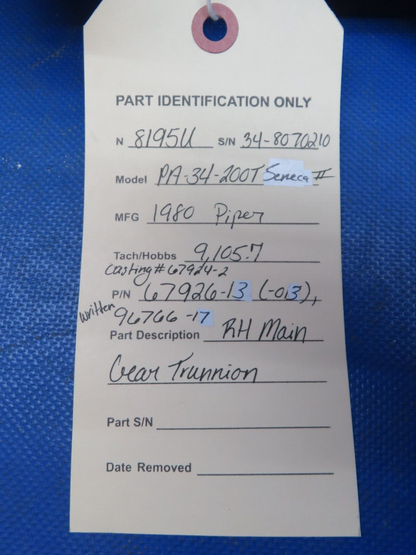 PART IDENTIFICATION ONLY
N 8195U S/N 34-8070210
Model PA-34-200T Seneca II
MFG 1980 Piper
Tach/Hobbs 9,105.7
Casting # 67924-2
P/N 67926-13 (-03),
written 96766-17
Part Description RH Main
Gear Trunnion
Part S/N
Date Removed